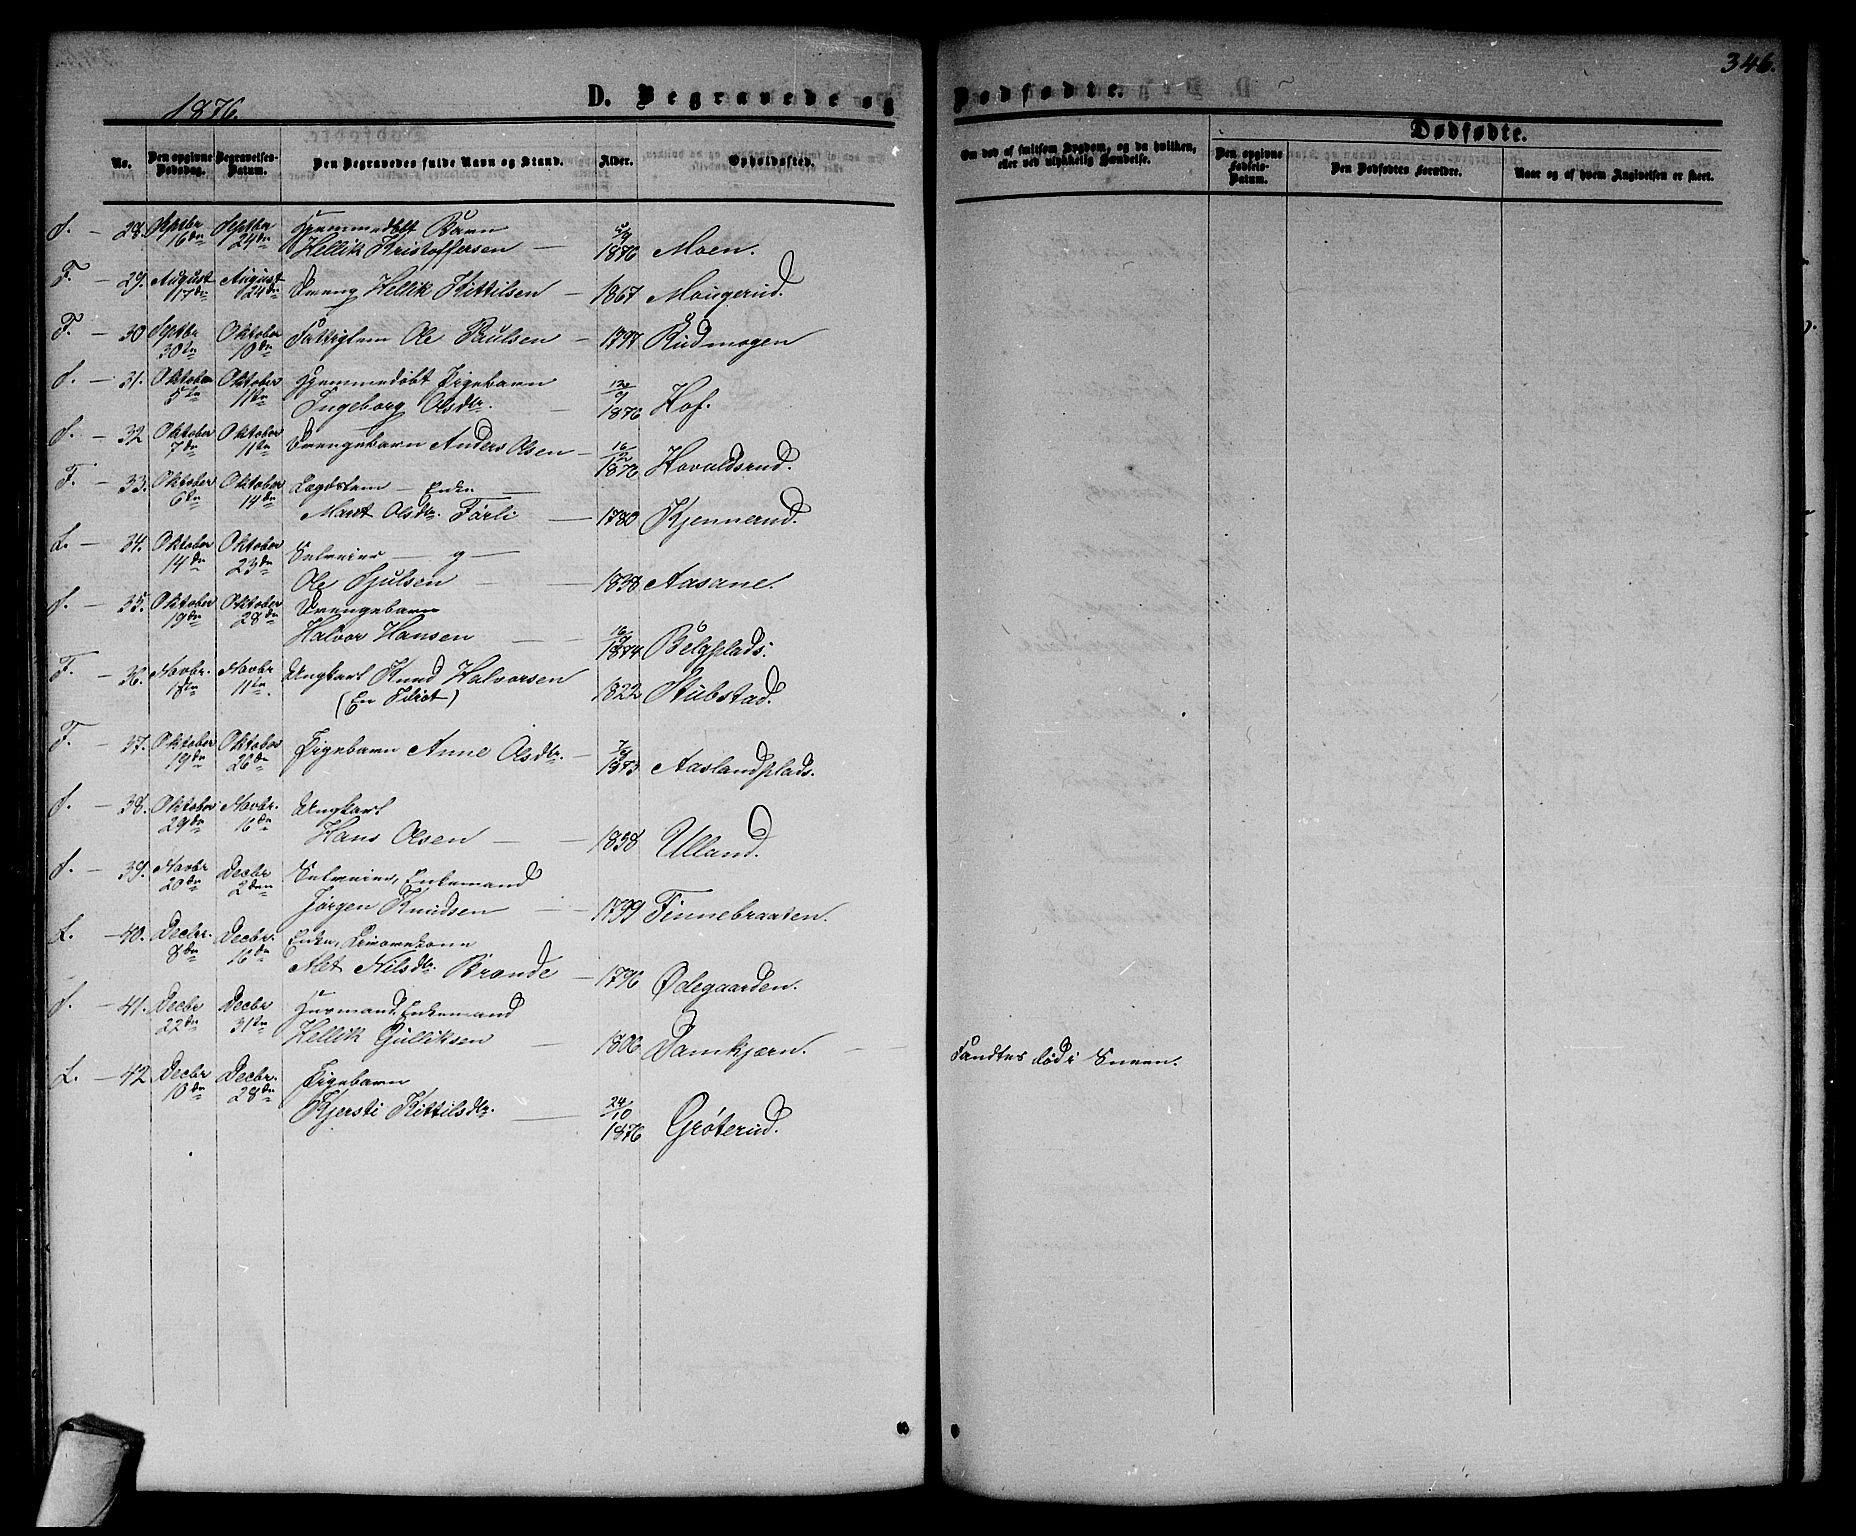 346.
1876.
D. Begravede og Dødfødte.
Dødfødte.
No.
Den opgivne Dødsdag.
Begravelses-Datum.
Den Begravedes fulde Navn og Stand.
Alder.
Opholdssted.
Om død af smitsom Sygdom, og da hvilken, eller ved ulykkelig Hændelse.
Den opgivne Fødsels-Datum.
Den Dødfødtes Forældre.
Naar og af hvem Angivelsen er skeet.
28. Septbr 16de Septbr 24de Hjemmedøbt Barn
Hellik Kristoffersen — 1876 Moen.
F. — 29. August 17de August 24de Dreng Hellik Kittilsen — 1867 Mougerud.
F. — 30 Septbr 30te Oktober 10de Fattiglem Ole Paulsen — 1797 Rudmogen
31. Oktober 5te Oktober 11te Hjemmedøbt Pigebarn
Ingeborg Olsdtr. — 1876 Hof.
32 Oktober 7de Oktober 11te Drengebarn Anders Olsen — 16/2 1876 Hovaldsrud.
F. — 33. Oktober 6te Oktober 14de Lægdslem — Enke —
Marit Olsdtr. Førli — 1780 Kjennerud.
L. — 34. Oktober 14de Oktober 23de Selveier — g —
Ole Sjulsen — 1838 Aasane.
35. Oktober 19de Oktober 28de Drengebarn
Halvor Hansen — 1874 Bølgplads.
F. — 36. Novbr. Novbr 11te Ungkarl Knud Halvorsen
(En Idiot) 1822 Stubstad.
F. — 37. Oktober 19de Oktober 26de Pigebarn Anne Olsdtr. — 1873 Aaslandplads.
38. Oktober 29de Novbr. 16de Ungkarl
Hans Olsen — 1858 Ulland.
39. Novbr 20de Decbr 2den Selveier, Enkemand
Jørgen Knudsen — 1799 Finnebraaten.
L. — 40. Decbr. 8de Decbr. 16de Enke,
Alet Nilsdtr. Brande — 1796 Ødegaarden.
41. Decbr 22de Decbr 31te Husmand, Enkemand
Hellik Gulliksen — 1806 Damkjærn. — Fandtes død i Sneen.
L. — 42 Decbr Decbr. 28de Pigebarn
Kjersti Kittilsdtr. — 24/10 1876 Grøterud.